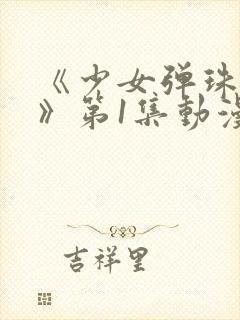 《少女弹珠
》第1集動漫
吉祥里